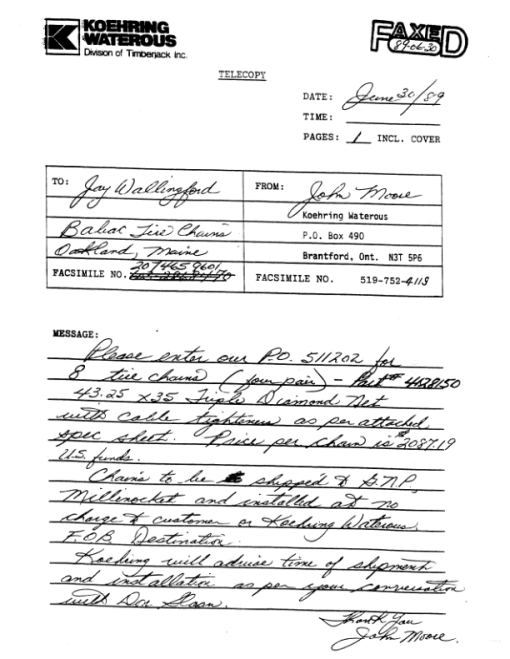 KOEHRING
WATEROUS
Division of Timberjack Inc.
FAXED
89-06-30
TELECOPY
DATE: June 30/89
TIME:
PAGES: 1 INCL. COVER
TO: Jay Wallingford
FROM: John Moore
Koehring Waterous
Babac Tire Chains
P.O. Box 490
Oakland, Maine
Brantford, Ont. N3T 5P6
207 465 9601
FACSIMILE NO.
FACSIMILE NO. 519-752-4118
MESSAGE:
Please enter our P.O. 511202 for
8 tire chains (four pair) - Part # 4128150
43.25 x 35 Triple Diamond Net
with cable tighteners as per attached
spec sheet. Price per chain is $2087.19
U.S. funds.
Chains to be shipped to G.N.P.
Millenocket and installed at no
charge to customer or Koehring Waterous.
F.O.B. Destination.
Koehring will advise time of shipment
and installation as per your conversation
with Don Sloan.
Thank You
John Moore.